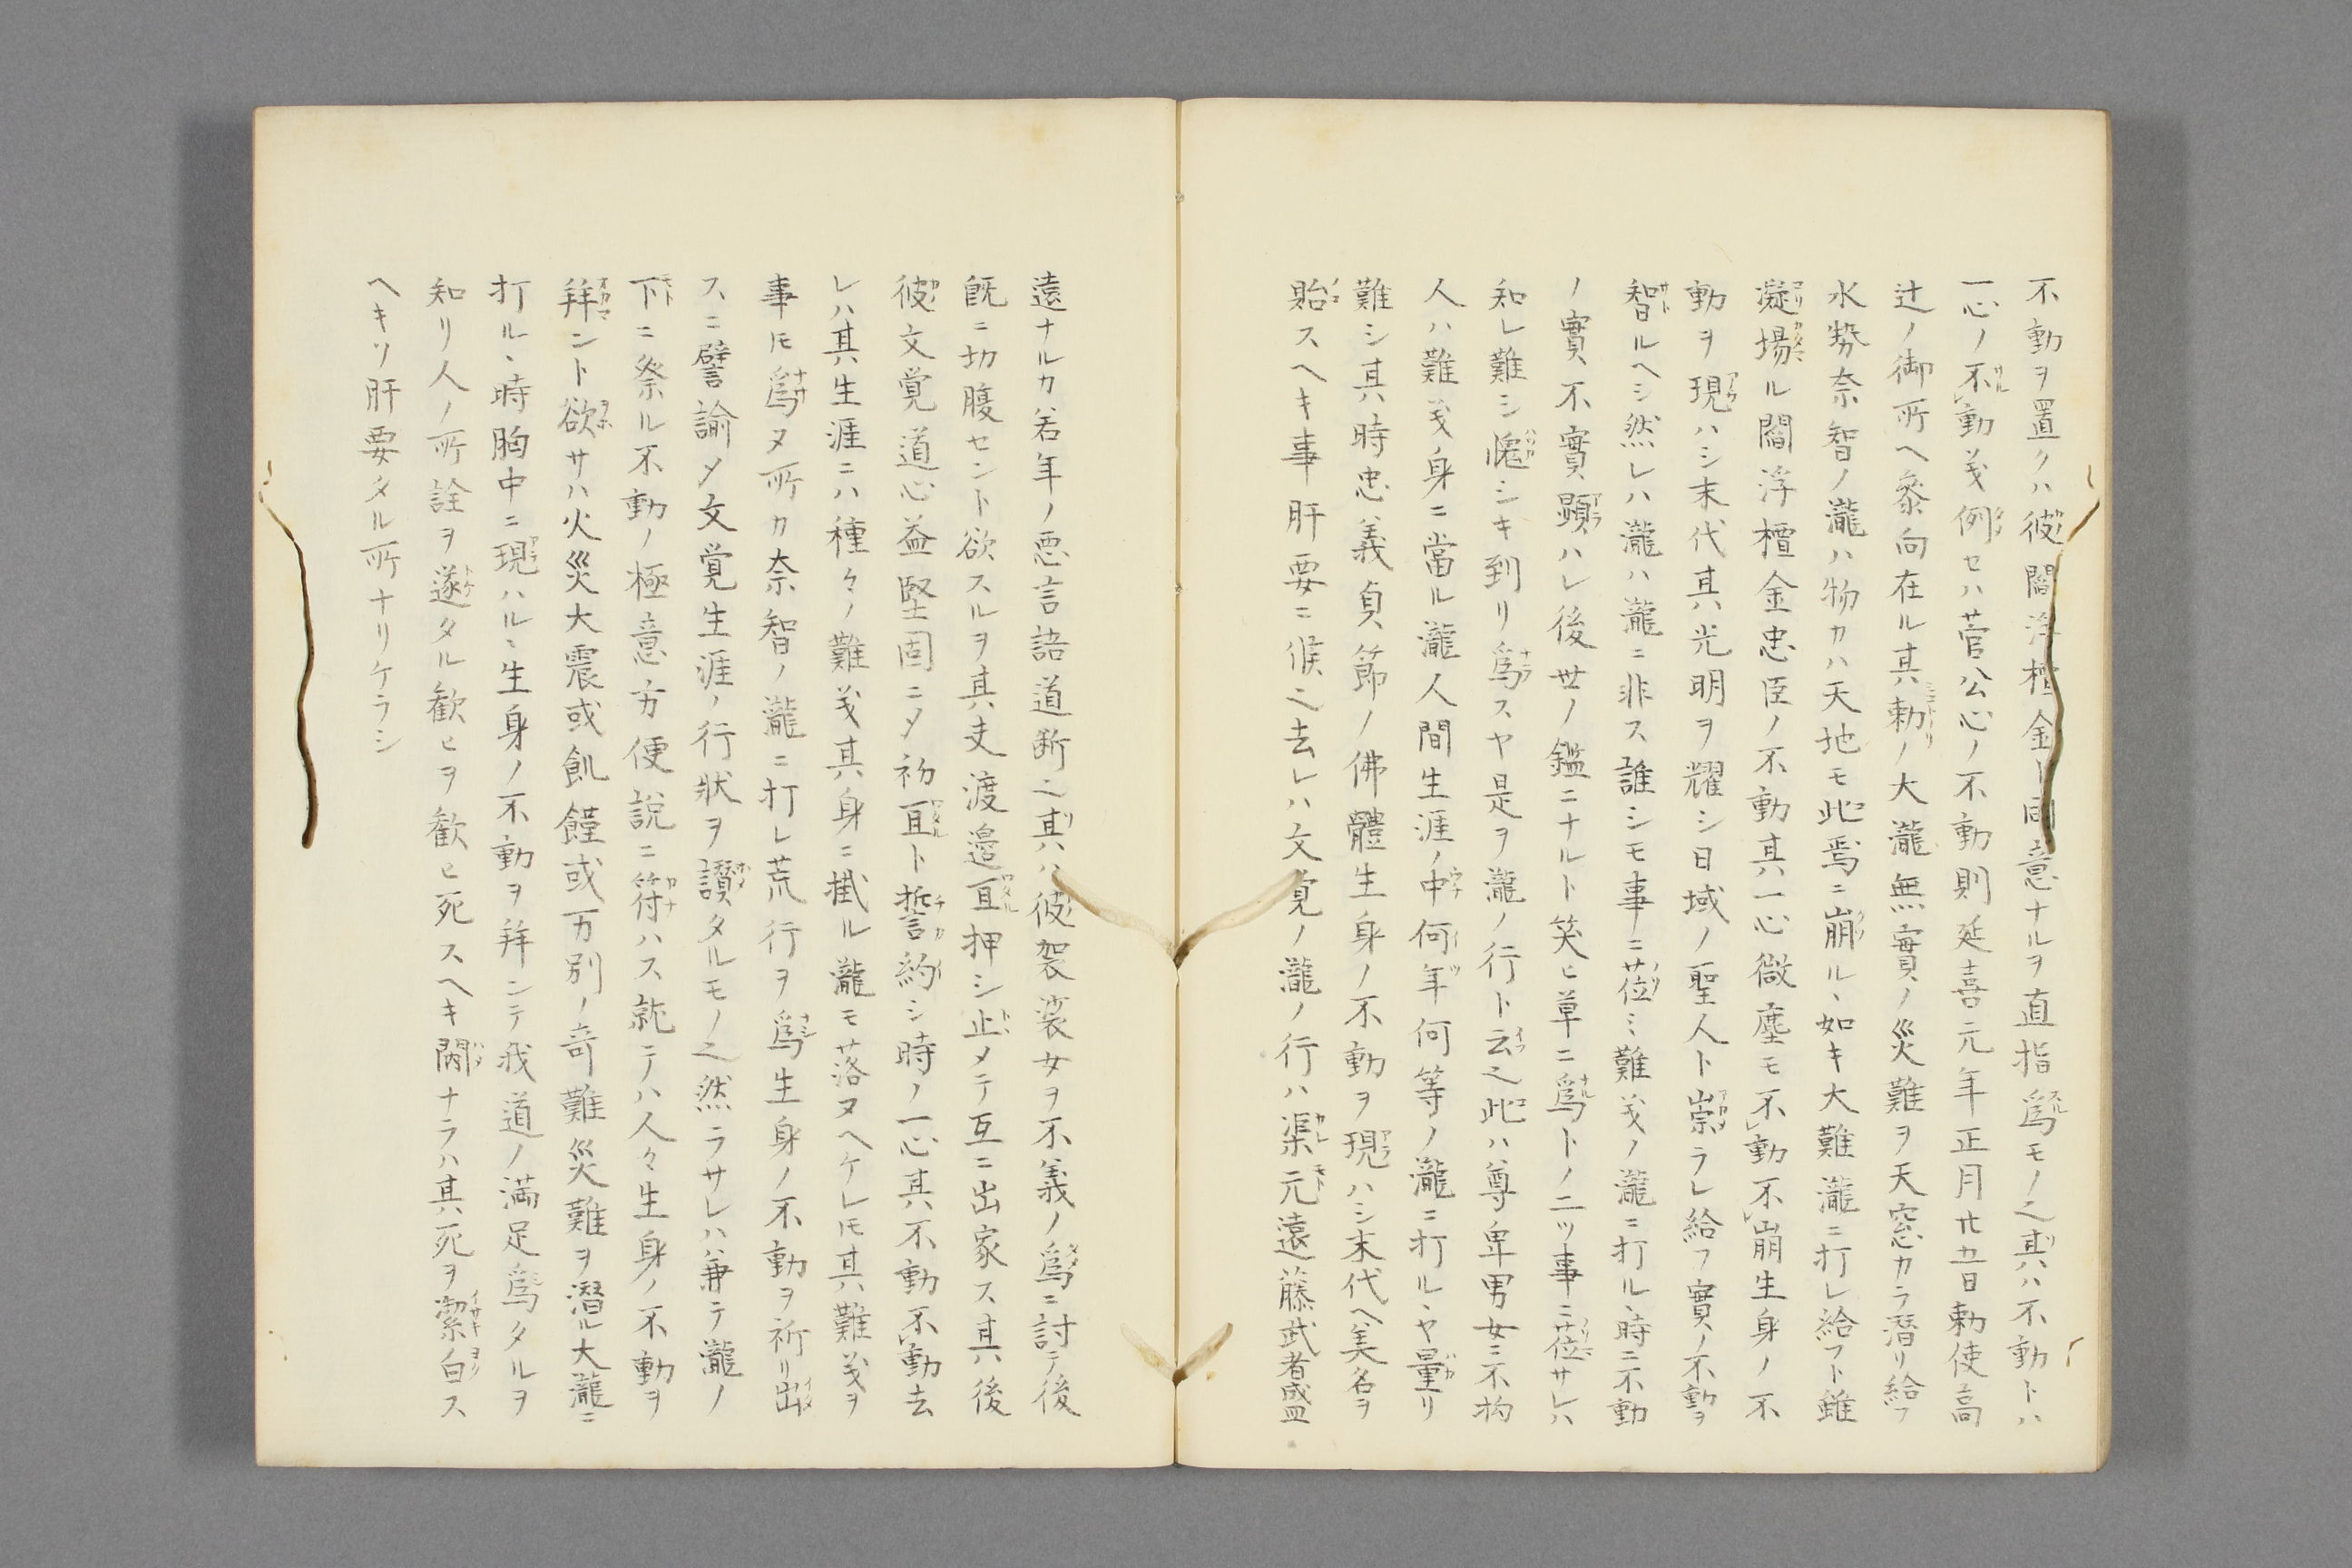 不動ヲ置クハ彼閻浮檀金ト同意ナルヲ直指爲モノ之其ハ不動トハ
一心ノ不動義例セハ菅公心ノ不動則延喜元年正月廿五日勅使高
辻ノ御所ヘ参向在ル其勅ノ大瀧無實ノ災難ヲ天窓カラ潜リ給フ
水勢奈智ノ瀧ハ物カハ天地モ此焉ニ崩ルヽ如キ大難瀧ニ打レ給フト雖
凝場ル閻浮檀金忠臣ノ不動其一心微塵モ不動不崩生身ノ不
動ヲ現ハシ末代其光明ヲ耀シ日域ノ聖人ト崇ラレ給フ實ノ不動ヲ
智ルヘシ然レハ瀧ハ瀧ニ非ス誰シモ事ニ莅ミ難義ノ瀧ニ打ルヽ時ニ不動
ノ實不實顕ハレ後世ノ鑑ニナルト笑ヒ草ニ爲トノ二ツ事ニ莅サレハ
知レ難シ愧シキ到リ爲スヤ是ヲ瀧ノ行ト云之此ハ尊卑男女ニ不拘
人ハ難義身ニ當ル瀧人間生涯ノ中何年何等ノ瀧ニ打ルヽヤ量リ
難シ其時忠義貞節ノ佛體生身ノ不動ヲ現ハシ末代ヘ美名ヲ
貽スヘキ事肝要ニ候之去レハ文覚ノ瀧ノ行ハ渠元遠藤武者盛
遠ナルカ若年ノ悪言語道断之其ハ彼袈裟女ヲ不義ノ爲ニ討テ後
既ニ切腹セント欲スルヲ其夫渡邉亘押シ止メテ互ニ出家ス其後
彼文覚道心益堅固ニメ初亘ト誓約シ時ノ一心其不動不動去
レハ其生涯ニハ種々ノ難義其身ニ掛ル瀧モ落ヌヘケレ𪜈其難義ヲ
事𪜈爲ヌ所カ奈智ノ瀧ニ打レ荒行ヲ爲生身ノ不動ヲ祈リ出
スニ譬諭メ文覚生涯ノ行狀ヲ讃タルモノ之然ラサレハ兼テ瀧ノ
下ニ祭ル不動ノ極意方便説ニ符ハス就テハ人々生身ノ不動ヲ
拜ント欲サハ火災大震或飢饉或万別ノ奇難災難ヲ潜ル大瀧ニ
打ルヽ時胸中ニ現ハルヽ生身ノ不動ヲ拜ンテ我道ノ満足爲タルヲ
知リ人ノ所詮ヲ遂タル歓ヒヲ歓ヒ死スヘキ関ナラハ其死ヲ潔白ス
ヘキソ肝要タル所ナリケラシ